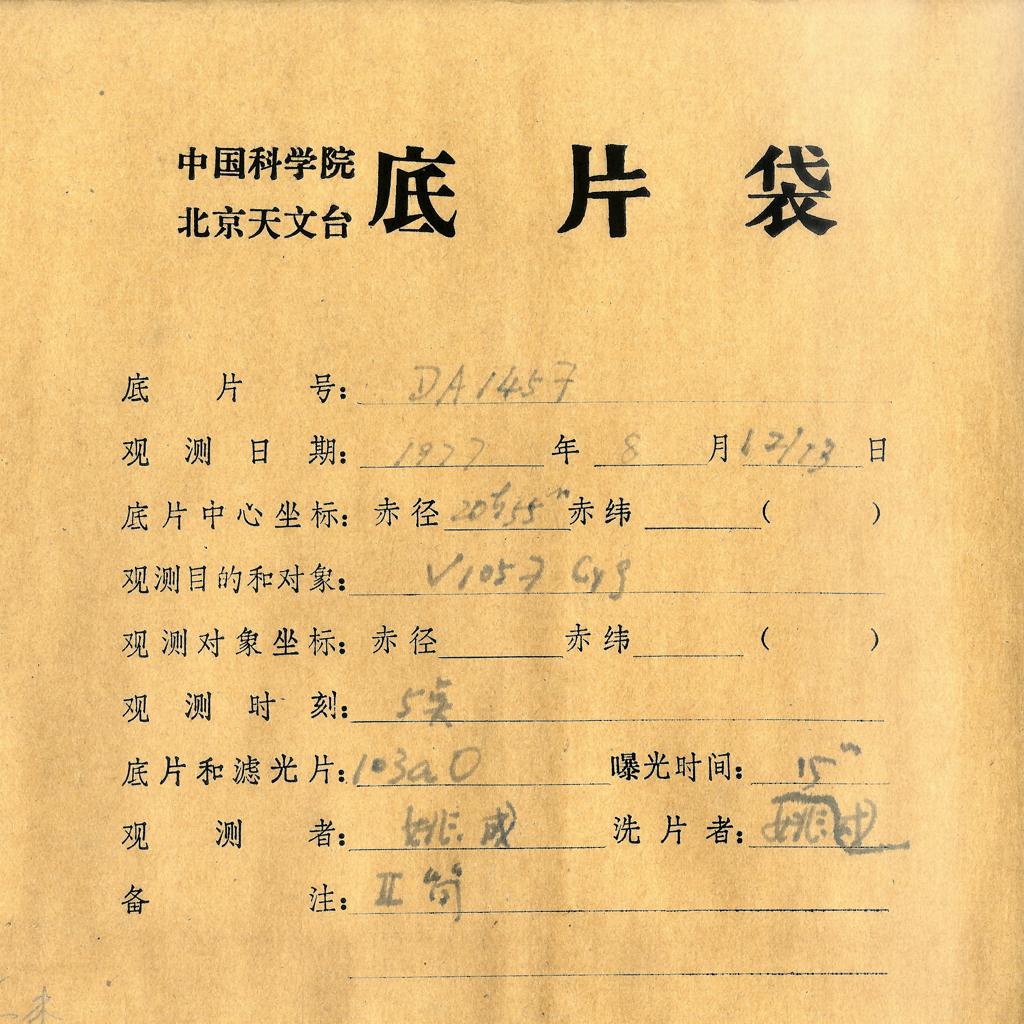 中国科学院
北京天文台
底片袋
底片号: DA1457
观测日期: 1977年8月12/13日
底片中心坐标: 赤径20h55m赤纬（ ）
观测目的和对象: V1057 Cyg
观测对象坐标: 赤径 赤纬（ ）
观测时刻: 5
底片和滤光片: 103aO 曝光时间: 15m
观测者: 姚 洗片者: 姚
备注: II 筒